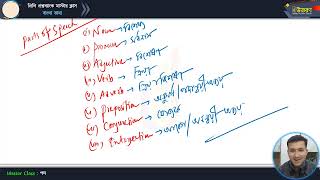 বিসিএস প্রিলি মাস্টার ক্লাস
বাংলা ভাষা
Parts of Speech
(i) Noun → বিশেষ্য
(ii) Pronoun → সর্বনাম
(iii) Adjective → বিশেষণ
(iv) Verb → ক্রিয়া
(v) Adverb → ক্রিয়া বিশেষণ
(vi) Preposition → অনুসর্গ/
(vii) Conjunction → যোজক
(viii) Interjection →
Master Class : পদ